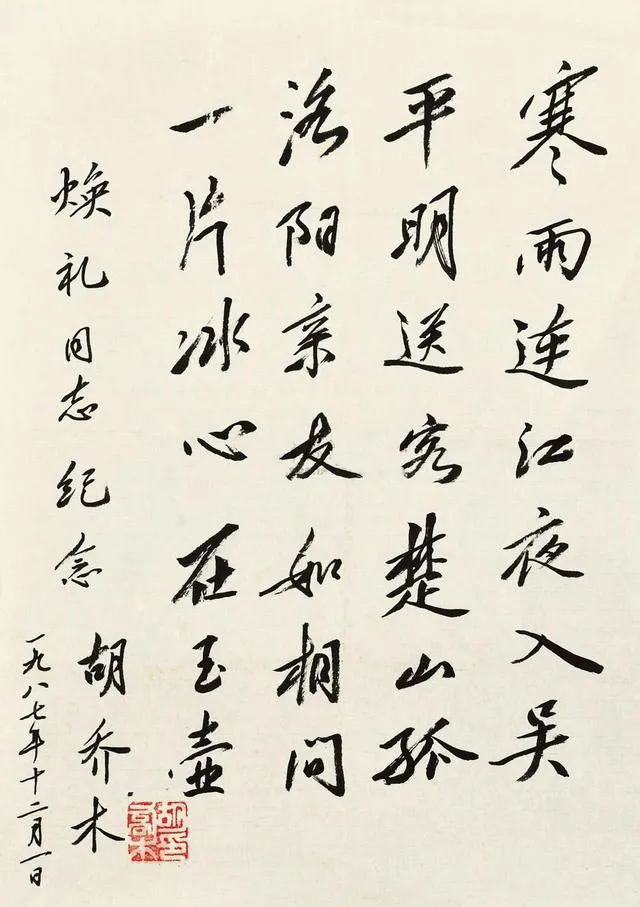 寒雨连江夜入吴
平明送客楚山孤
洛阳亲友如相问
一片冰心在玉壶
焕礼同志纪念
胡乔木
一九八七年十二月一日
胡乔木印